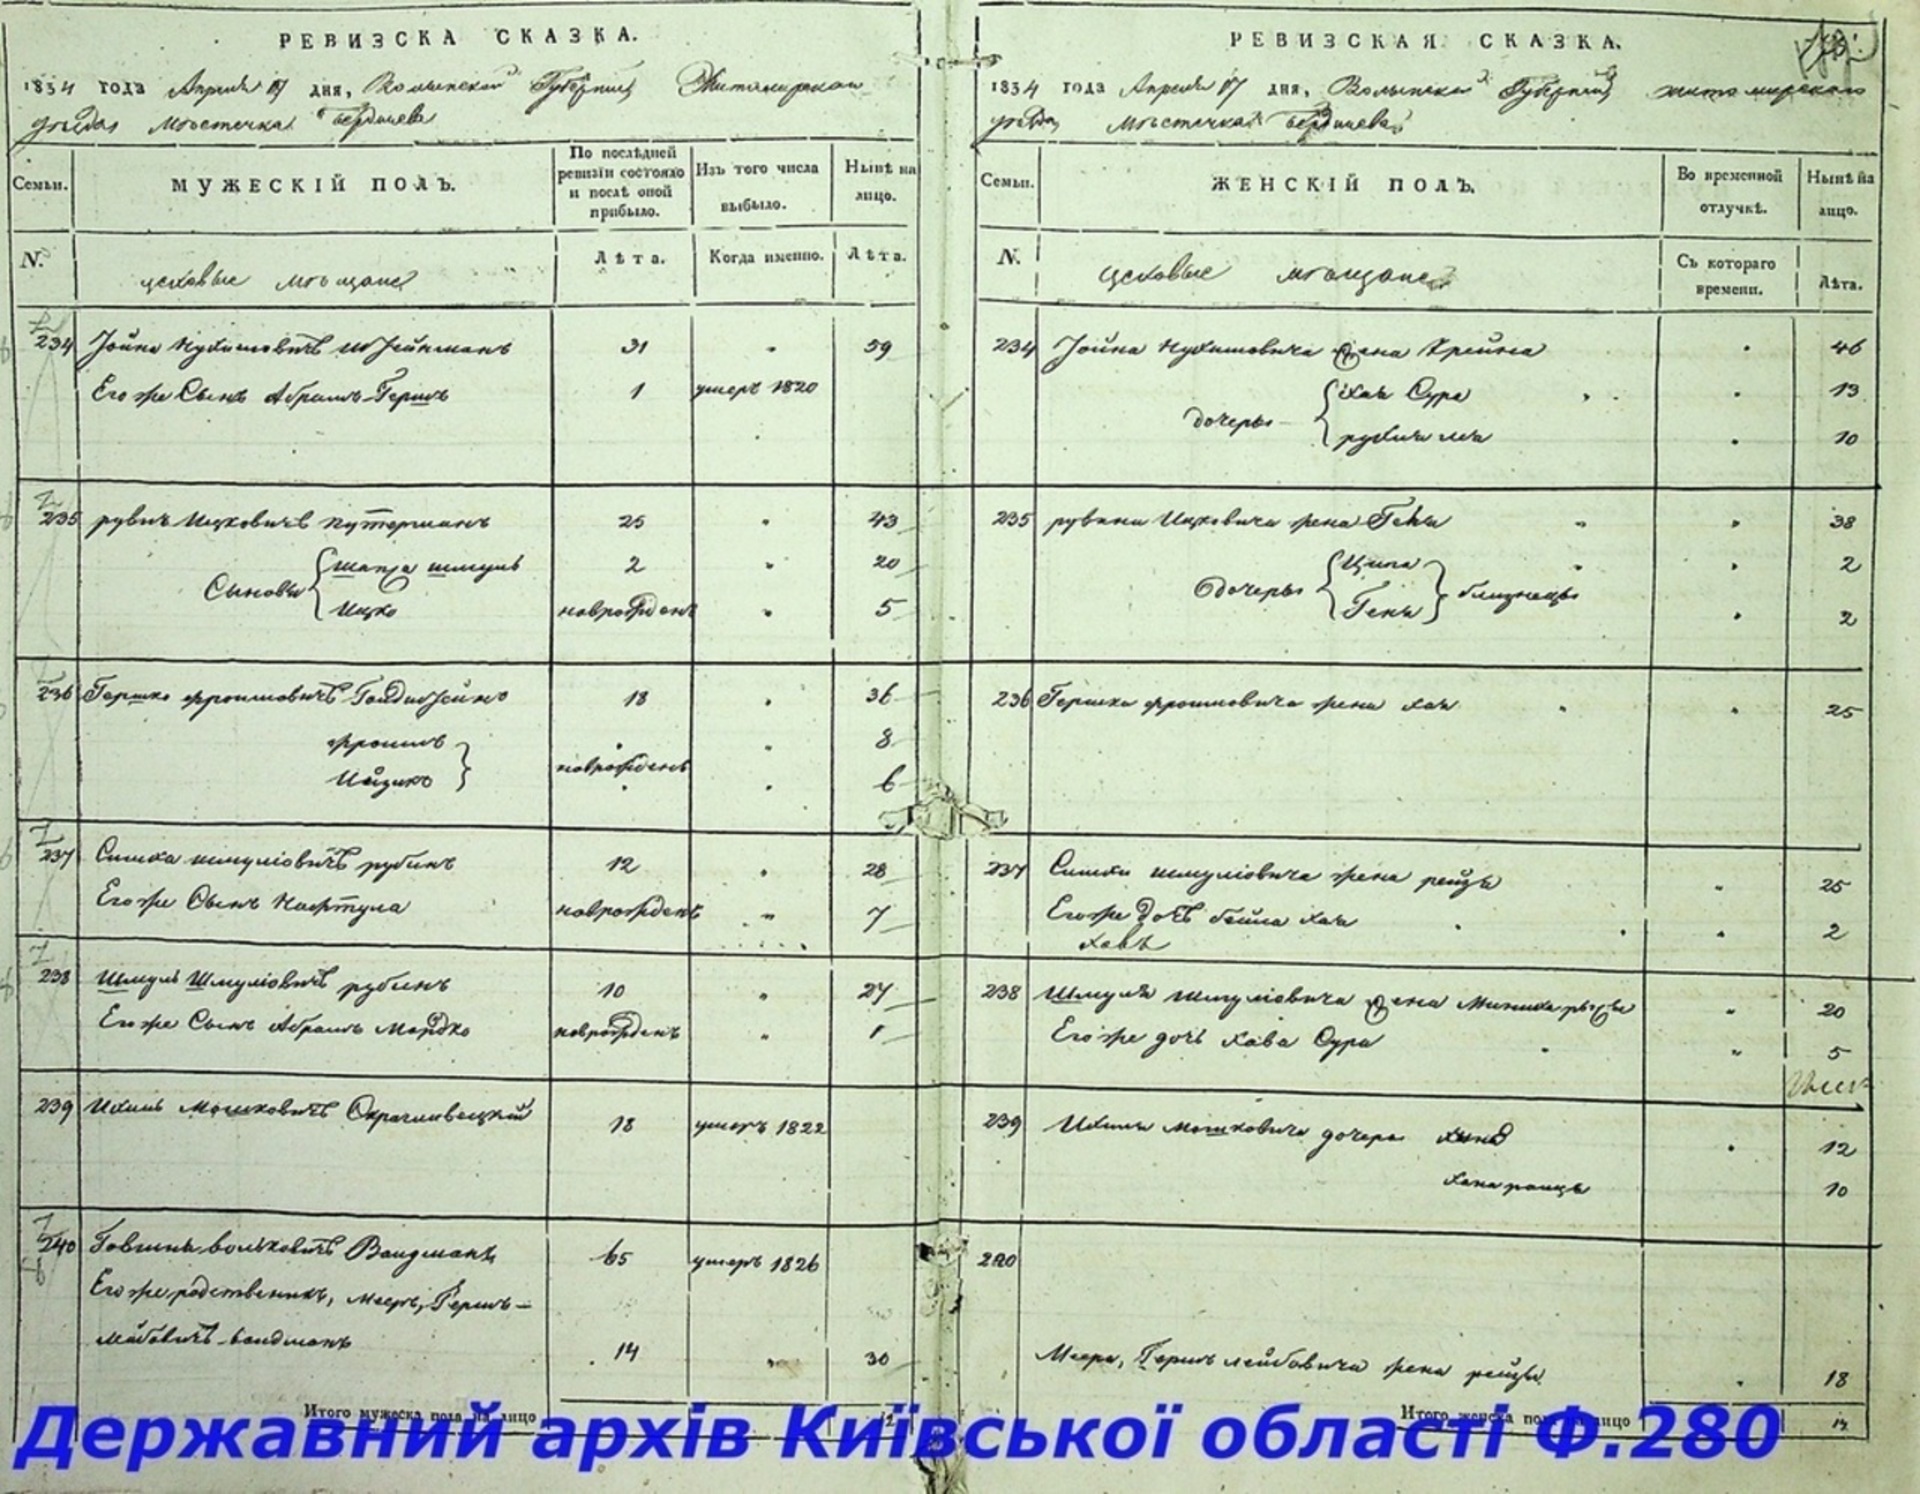 РЕВИЗСКА СКАЗКА.
1834 года Апреля 17 дня, Волынской Губернии Житомирскаго
уезда Местечка Бердичева
Семьи.
МУЖЕСКІЙ ПОЛЪ.
По послѣдней ревизіи состояло и послѣ оной прибыло.
Изъ того числа выбыло.
Нынѣ на лицо.
N.
цеховые мещане
Лѣта.
Когда именно.
Лѣта.
234 Іойна Нухимовичъ 31 59
Его же Сынъ Абрамъ-Гершъ 1 умеръ 1820
235 рувинъ Ицковичъ путерманъ 25 43
Сыновья
шапса шмуль 2 20
Ицко новорожденъ 5
236 Гершко фроимовичъ 18 36
фроимъ 8
новорожденъ
Ицикъ 6
237 Симха шмуліовичъ рубинъ 12 28
Его же Сынъ Нафтула новорожденъ 7
238 Шмуль Шмуліовичъ рубинъ 10 27
Его же Сынъ Абрамъ Мордко новорожденъ 1
239 Ихиль Мошковичъ 18 умеръ 1822
240 вольковичъ Ваидманъ 65 умеръ 1826
Его же родственникъ, Мееръ, Гершъ-
Лейбовичъ ваидманъ 14 30
Итого мужеска пола на лицо 12
РЕВИЗСКАЯ СКАЗКА.
1834 года Апреля 17 дня, Волынской Губерніи житомирскаго
уезда Местечка Бердичева
Семьи.
ЖЕНСКІЙ ПОЛЪ.
Во временной отлучкѣ.
Нынѣ на лицо.
N.
цеховые мещане
Съ котораго времени.
Лѣта.
234 Іойна Нухимовича жена Фрейна 46
дочеры
Хая Сура 13
рухля лея 10
235 рувина Ицковича жена Геня 38
дочеры
Ципа 2
близнецы
Геня 2
236 Гершка фроимовича жена хая 25
237 Симхи шмуліовича жена рейзя 25
Его же дочь бейла хая 2
238 Шмуля шмуліовича жена 20
Его же дочь хава Сура 5
239 Ихиля Мошковича дочеры 12
хана 10
240
Меера, Герша лейбовича жена рейзя 18
Итого женска пола на лицо 14
Державний архів Київської області Ф.280